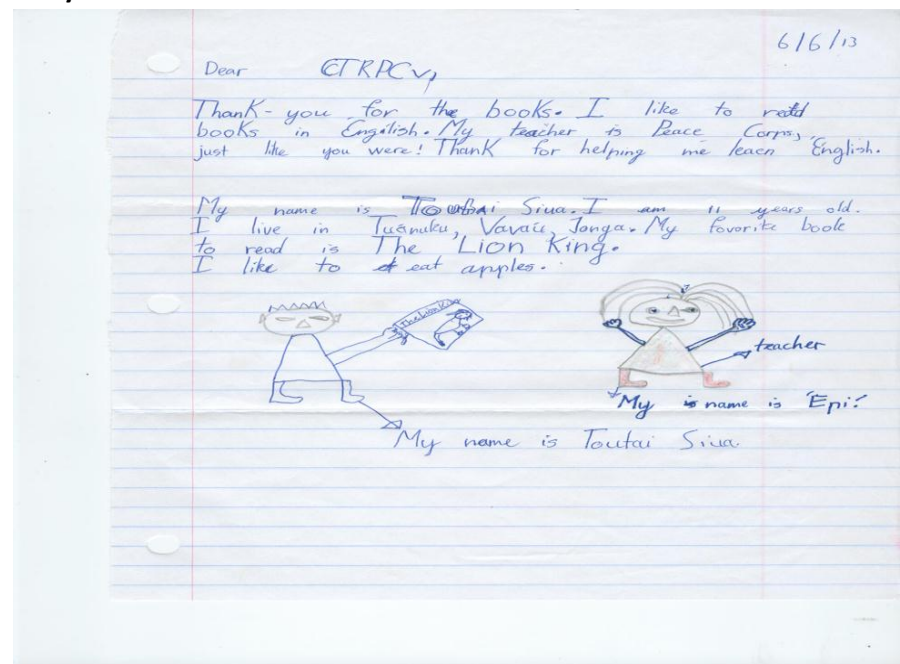 6/6/13
Dear CTRPCV,
Thank-you for the books. I like to read
books in Engilish. My teacher is Peace Corps,
just like you were! Thank for helping me learn English.
My name is Toutai Siua. I am 11 years old.
I live in Tuanuku, Vavau, Tonga. My favorite book
to read is The Lion King.
I like to eat apples.
The Lion King
teacher
My name is 'Epi!
My name is Toutai Siua